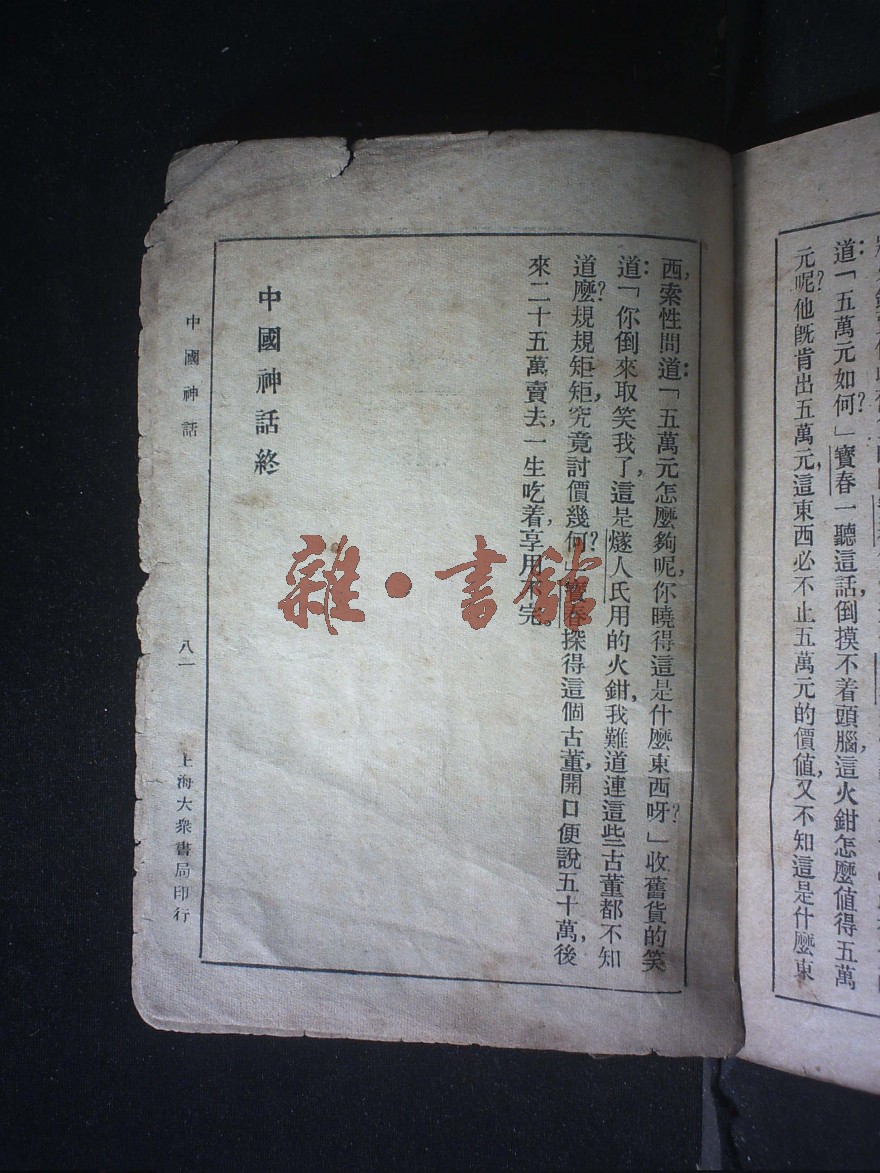 道：「五萬元如何？」寳春一聽這話，倒摸不着頭腦，這火鉗怎麼値得五萬
元呢？他旣肯出五萬元，這東西必不止五萬元的價値，又不知這是什麼東
西，索性問道：「五萬元怎麼夠呢，你曉得這是什麼東西呀？」收舊貨的笑
道：「你倒來取笑我了，這是燧人氏用的火鉗，我難道連這些古董都不知
道麼？規規矩矩，究竟討價幾何？」寳春探得這個古董，開口便說五十萬，後
來二十五萬賣去，一生吃着享用不完。
中國神話終
中國神話
八一
上海大衆書局印行
雜·書館